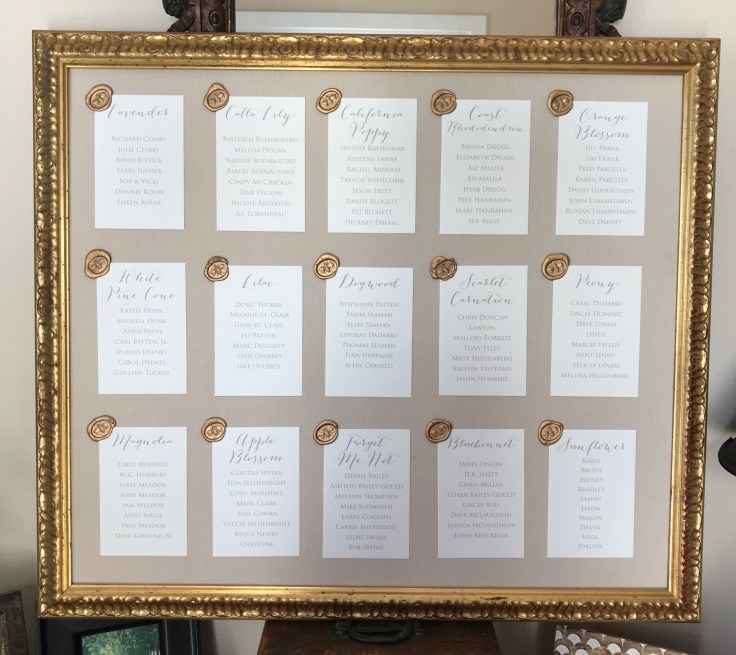 Lavender
Richard Cesare
Julie Cesare
Sonja Justice
Terry Justice
Bob & Vicki
Donnie Rouse
Eileen Rouse
Calla Lily
Rayleigh Buenrostro
Melissa Dogan
Natalie Buenrostro
Albert Buenrostro
Cindy McCracken
Dan Pegion
Nicole Argeriou
A.J. Lorandeau
California
Poppy
Rachel Arnold
Trevor Whitcomb
Jason Fritz
Randy Blogett
Pat Blogett
Delaney Drugg
Coast
Rhododendron
Briana Drugg
Elizabeth Drugg
Liz Malila
Ed Malila
Herb Drugg
Pete Hanrahan
Mary Hanrahan
Sue Reese
Orange
Blossom
Jill Frank
Jim Frank
Fred Parcells
Karen Parcells
David
John
Dave Deeney
White
Pine Cone
Kathi Frink
Michell Frink
Adam Frink
Carl Patten, Jr.
Harris Deeney
Carol Deeney
Colleen Tucker
Lilac
Doug Tucker
Melanie St. Clair
Gene St. Clair
Jay Patten
Marc Duggett
Erin Overbey
Jake Overbey
Dogwood
Stephanie Patten
Tasha Seaman
Ellee Seaman
Lindsay Dadabbo
Thomas Seaman
Tina Huffman
Avery Cerillo
Scarlet
Carnation
Chris Duncan
Lawson
Mallory Forrest
Tony Felty
Matt Hilgenberg
Kirstin Stafford
Jason Humbert
Peony
Craig Dadabbo
Uncle Dominic
Marcie Felegy
Aunt Jenny
Felicia Lynam
Melissa Hilgenberg
Magnolia
Lorie Humbert
W.C. Humbert
Nate Meador
Josh Meador
Sam Meador
Aunt Angie
Paul Meador
Dave Kamenecke
Apple
Blossom
Claudia Irvine
Tom Seldenright
Cody Marshall
Mark Clark
Joel Cowan
Yvette Seldenright
Becca Newby
Cheyenne
Forget
Me Not
Debbie Bailey
Ashton Bailey Gould
Melanie Suominen
Mike Suominen
Larry Goggins
Carrie Sherwood
Jolne Irvine
Bob Irvine
Bluebonnet
James Onion
D.K. Hayit
Chris Miller
Ethan Bailey Gould
Uncle Bud
Dave McLaughlin
Jessica McLaughlin
John Benckella
Sunflower
Karie
Brody
Sydney
Bradley
Sammy
Jason
Mason
Davin
Vega
Jordyn